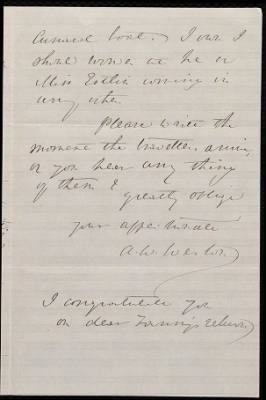 Cunard boat. I own I
should wonder at he or
Miss Estlin coming in
any other.
Please write the
moment the travellers arrive,
or you hear any thing
of them &
greatly oblige
your affectionate
A. W. Weston.
I congratulate you
on dear Fanny's return.